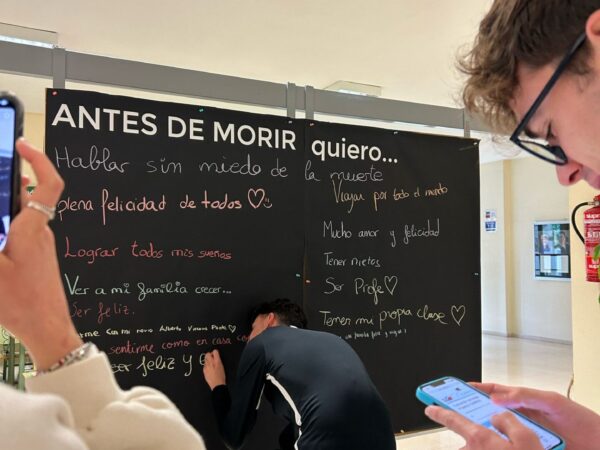 ANTES DE MORIR quiero...
Hablar sin miedo de la muerte
plena felicidad de todos
Lograr todos mis sueños
Ver a mi familia crecer...
Ser feliz.
con mi novio Alberto
sentirme como en casa con
Ser feliz y
Viajar por todo el mundo
Mucho amor y felicidad
Tener nietos
Ser Profe
Tener mi propia clase